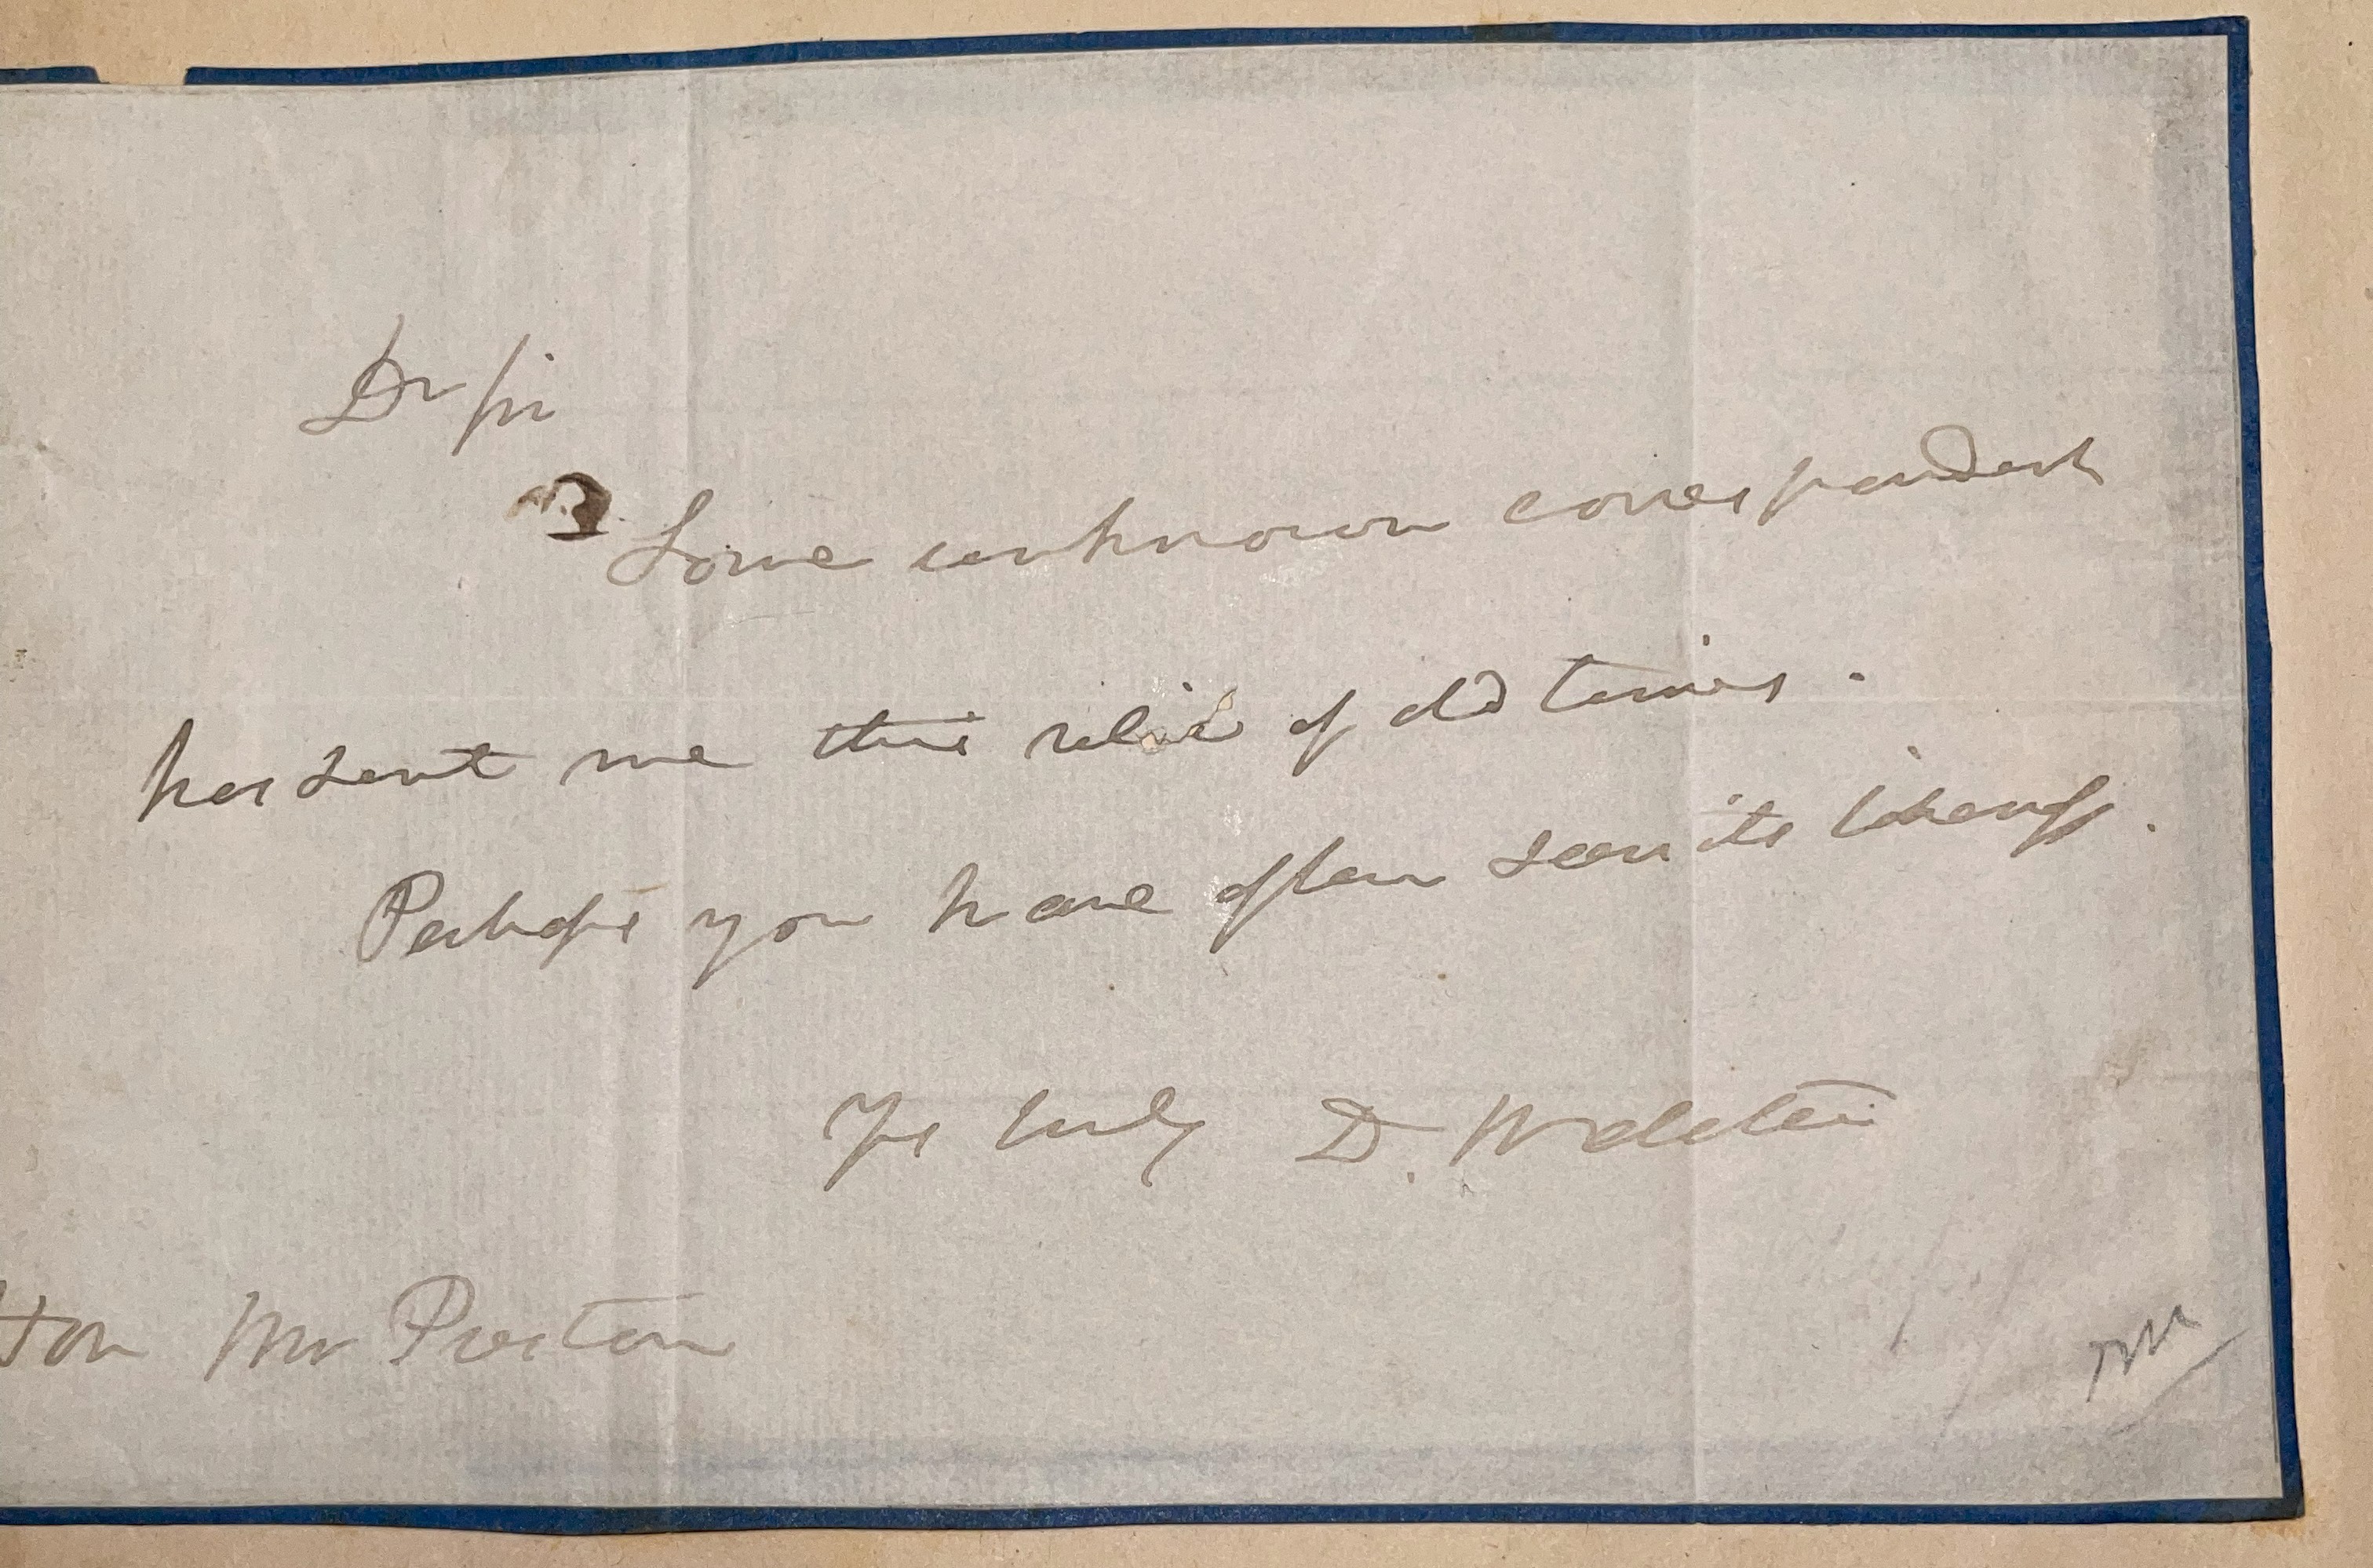 Dr Sir
Some unknown correspondent
has sent me this relic of old times.
Perhaps you have often seen its likeness.
Yrs truly D. Webster
Hon Mr Preston